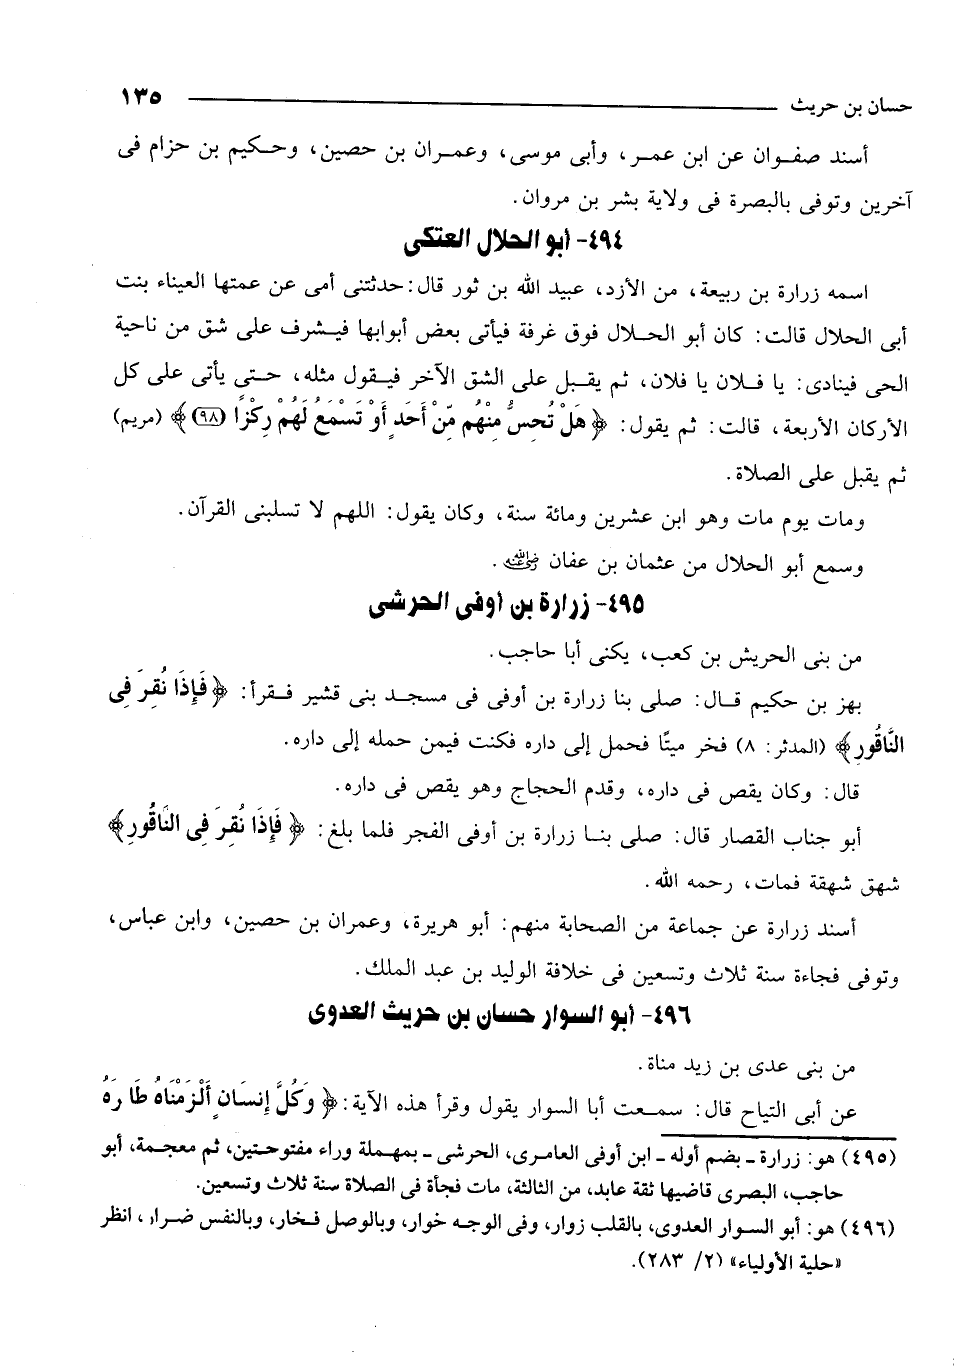 حسان بن حريث ١٣٥
أسند صفوان عن ابن عمر، وأبى موسى، وعمران بن حصين، وحكيم بن حزام فى
آخرين وتوفى بالبصرة فى ولاية بشر بن مروان.
٤٩٤- أبو الحلال العتكى
اسمه زرارة بن ربيعة، من الأزد، عبيد الله بن ثور قال: حدثتنى أمى عن عمتها العيناء بنت
أبى الحلال قالت: كان أبو الحلال فوق غرفة فيأتى بعض أبوابها فيشرف على شق من ناحية
الحى فينادى: يا فلان يا فلان، ثم يقبل على الشق الآخر فيقول مثله، حتى يأتى على كل
الأركان الأربعة، قالت: ثم يقول: ﴿هَلْ تُحِسُّ مِنْهُم مِّنْ أَحَدٍ أَوْ تَسْمَعُ لَهُمْ رِكْزًا (٩٨)﴾ (مريم)
ثم يقبل على الصلاة.
ومات يوم مات وهو ابن عشرين ومائة سنة، وكان يقول: اللهم لا تسلبنى القرآن.
وسمع أبو الحلال من عثمان بن عفان رضي الله عنه.
٤٩٥- زرارة بن أوفى الحرشى
من بنى الحريش بن كعب، يكنى أبا حاجب.
بهز بن حكيم قال: صلى بنا زرارة بن أوفى فى مسجد بنى قشير فقرأ: ﴿فَإِذَا نُقِرَ فِى
النَّاقُورِ﴾ (المدثر: ٨) فخر ميتًا فحمل إلى داره فكنت فيمن حمله إلى داره.
قال: وكان يقص فى داره، وقدم الحجاج وهو يقص فى داره.
أبو جناب القصار قال: صلى بنا زرارة بن أوفى الفجر فلما بلغ: ﴿فَإِذَا نُقِرَ فِى النَّاقُورِ﴾
شهق شهقة فمات، رحمه الله.
أسند زرارة عن جماعة من الصحابة منهم: أبو هريرة، وعمران بن حصين، وابن عباس،
وتوفى فجاءة سنة ثلاث وتسعين فى خلافة الوليد بن عبد الملك.
٤٩٦- أبو السوار حسان بن حريث العدوى
من بنى عدى بن زيد مناة.
عن أبى التياح قال: سمعت أبا السوار يقول وقرأ هذه الآية: ﴿وَكُلَّ إِنسَانٍ أَلْزَمْنَاهُ طَائِرَهُ
(٤٩٥) هو: زرارة ـ بضم أوله ـ ابن أوفى العامرى، الحرشى ـ بمهملة وراء مفتوحتين، ثم معجمة، أبو
حاجب، البصرى قاضيها ثقة عابد، من الثالثة، مات فجأة فى الصلاة سنة ثلاث وتسعين.
(٤٩٦) هو: أبو السوار العدوى، بالقلب زوار، وفى الوجه خوار، وبالوصل فخار، وبالنفس ضرار، انظر
«حلية الأولياء» (٢/ ٢٨٣).